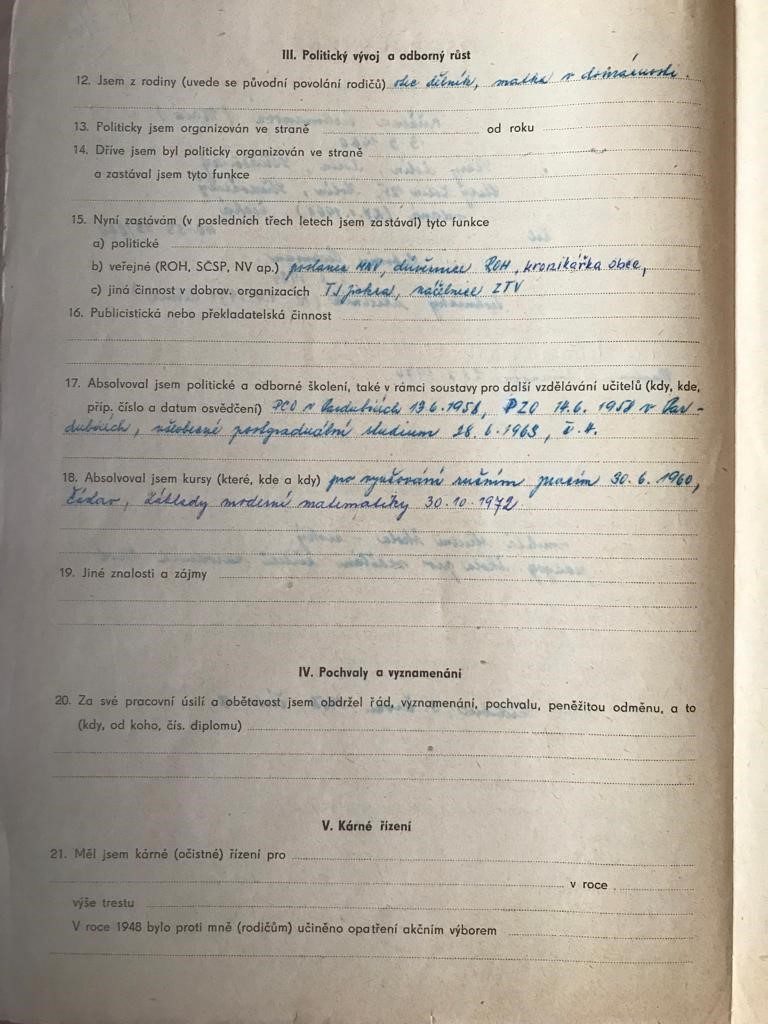 III. Politický vývoj a odborný růst
12. Jsem z rodiny (uvede se původní povolání rodičů) otec dělník, matka v domácnosti.
13. Politicky jsem organizován ve straně od roku
14. Dříve jsem byl politicky organizován ve straně
a zastával jsem tyto funkce
15. Nyní zastávám (v posledních třech letech jsem zastával) tyto funkce
a) politické
b) veřejné (ROH, SČSP, NV ap.) poslanec MNV, důvěrnice ROH, kronikářka obce,
c) jiná činnost v dobrov. organizacích TJ Jiskra, náčelnice ZTV
16. Publicistická nebo překladatelská činnost
17. Absolvoval jsem politické a odborné školení, také v rámci soustavy pro další vzdělávání učitelů (kdy, kde,
příp. číslo a datum osvědčení) v Pardubicích 13.6.1958, PZO 14.6.1958 v Par-
dubicích, všeobecné postgraduální studium 28.6.1963, č. 4.
18. Absolvoval jsem kursy (které, kde a kdy) pro vyučování ručním pracím 30.6.1960,
Čáslav, Základy moderní matematiky 30.10.1972
19. Jiné znalosti a zájmy
IV. Pochvaly a vyznamenání
20. Za své pracovní úsilí a obětavost jsem obdržel řád, vyznamenání, pochvalu, peněžitou odměnu, a to
(kdy, od koho, čís. diplomu)
V. Kárné řízení
21. Měl jsem kárné (očistné) řízení pro
v roce
výše trestu
V roce 1948 bylo proti mně (rodičům) učiněno opatření akčním výborem